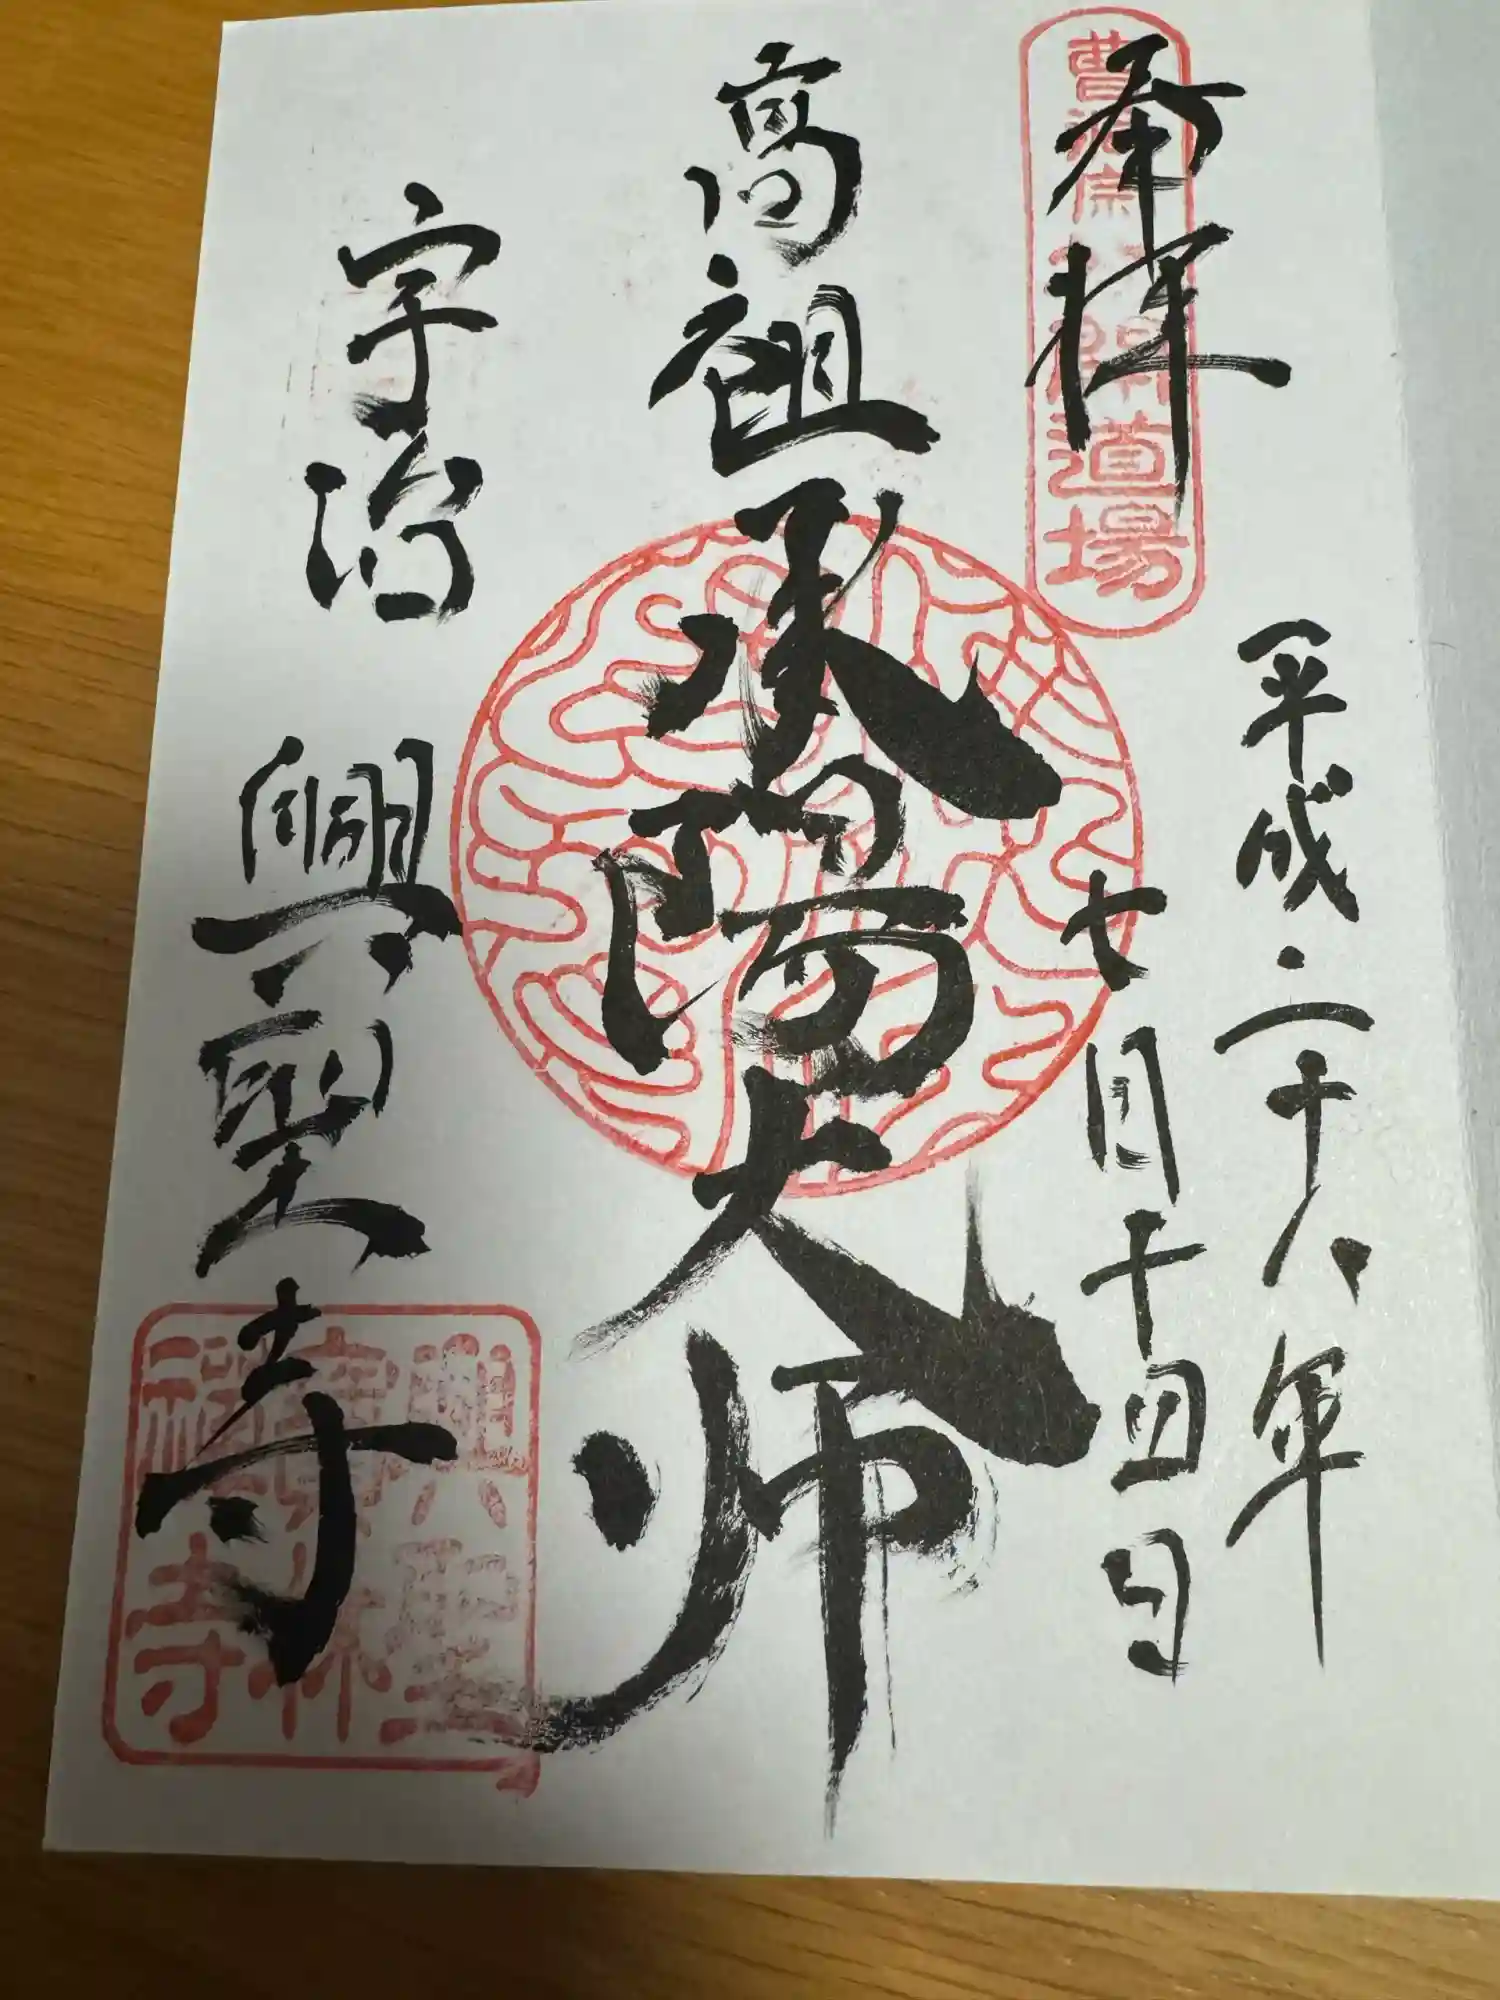 奉拝
曹洞宗 初開道場
平成二十八年
七月十四日
高祖承陽大師
宇治 興聖寺
興聖
寶林
禅寺